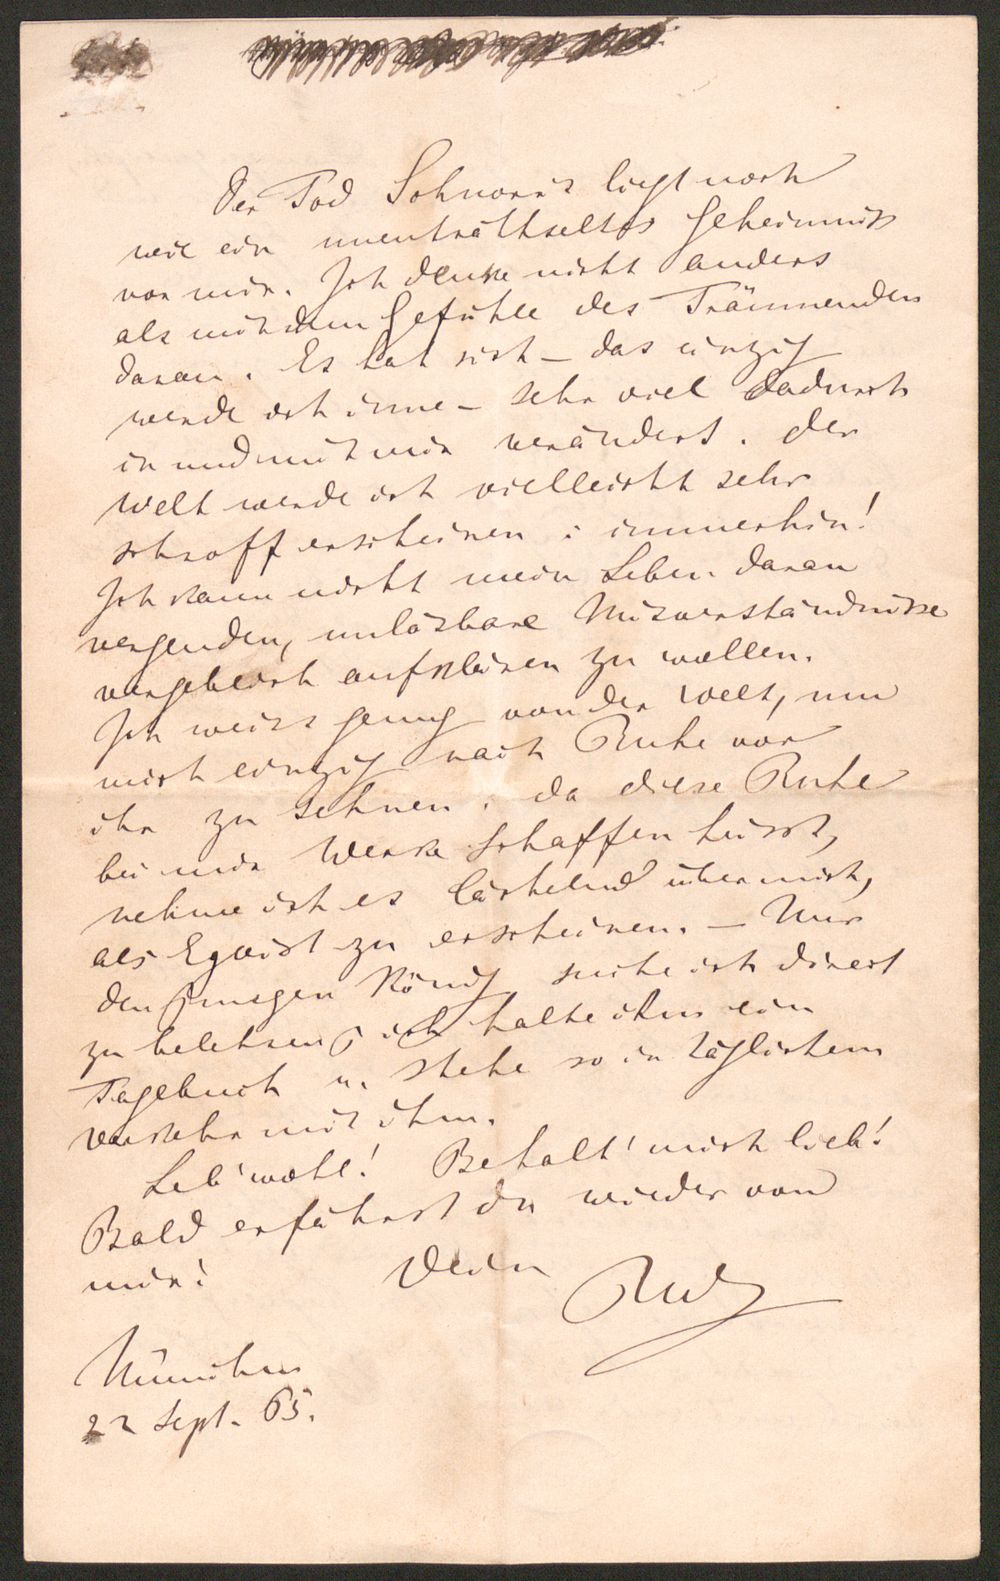 Der Tod Schnorr's liegt noch
wie ein unenträthseltes Geheimniss
vor mir. Ich denke nicht anders
als mit dem Gefühle des Träumenden
daran. Es hat sich – das einzig
werde ich inne – sehr viel dadurch
in und mit mir verändert. Der
Welt werde ich vielleicht sehr
schroff erscheinen: immerhin!
Ich kann nicht mein Leben daran
vergeuden, unlösbare Misverständnisse
vergeblich aufklären zu wollen.
Ich weiss genug von der Welt, um
mich einzig nach Ruhe vor
ihr zu sehnen. da diese Ruhe
bei mir Werke schaffen heisst,
nehme ich es lächelnd über mich,
als Egoist zu erscheinen. – Nur
den jungen König suche ich direct
zu belehren; ich halte ihm ein
Tagebuch u. stehe so in täglichem
Verkehr mit ihm.
Leb' wohl! Behalt' mich lieb!
Bald erfährst du wieder von
mir!
Dein
RW
München
22 Sept. 65.